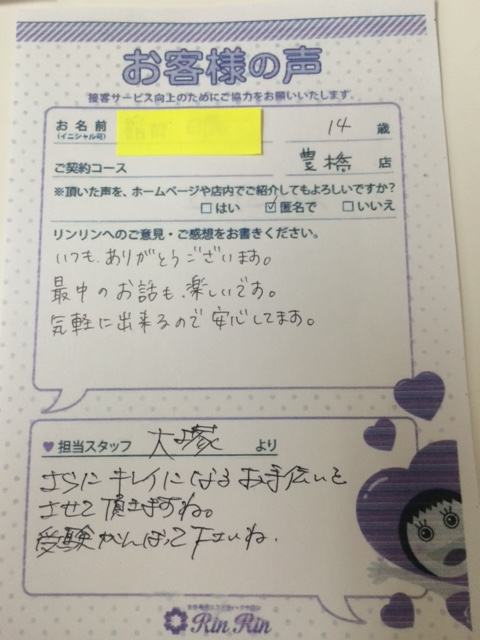 お客様の声
接客サービス向上のためにご協力をお願いいたします。
お名前 14 歳
(イニシャル可)
ご契約コース 豊橋 店
※頂いた声を、ホームページや店内でご紹介してもよろしいですか？
□はい ☑匿名で □いいえ
リンリンへのご意見・ご感想をお書きください。
いつも、ありがとうございます。
最中のお話も、楽しいです。
気軽に出来るので安心してます。
♥担当スタッフ 大塚 より
さらにキレイになるお手伝いを
させて頂きますね。
受験がんばって下さいね.
Rin Rin